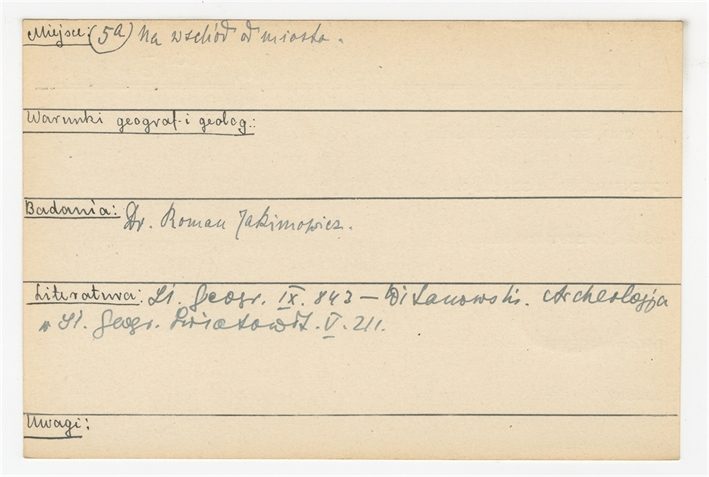 Miejsce: (5a) Na wschód od miasta.
Warunki geograf. i geolog.:
Badania: Dr. Roman Jakimowicz.
Literatura: Sł. Geogr. IX. 843 – Witanowski. Archeologja
w Sł. Geogr. Światowit. V. 211.
Uwagi: